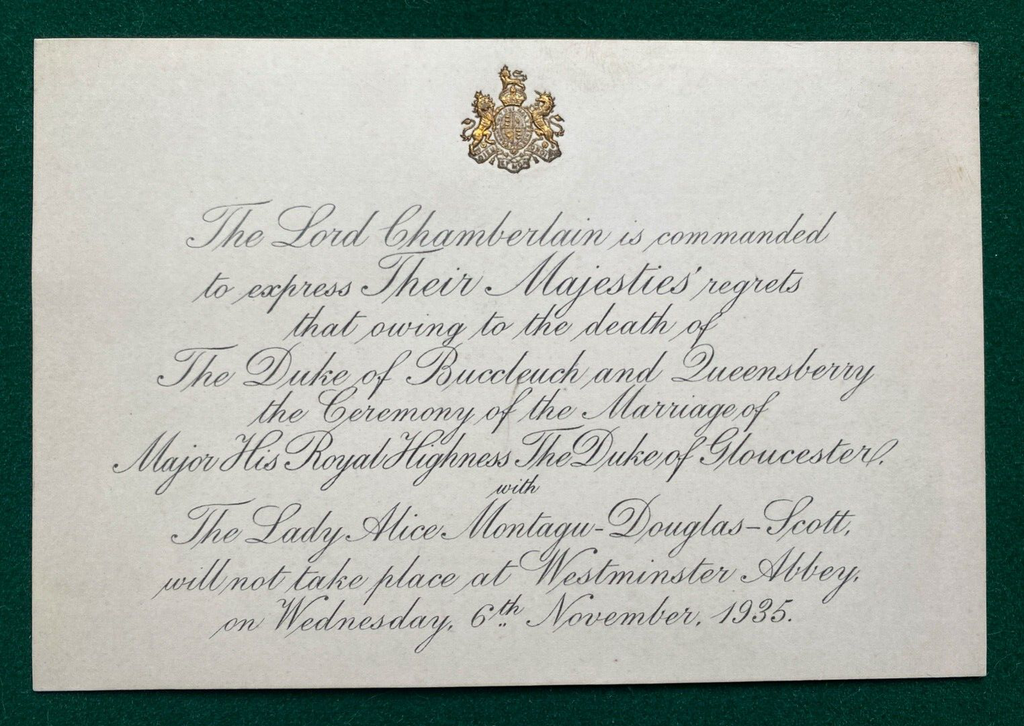 The Lord Chamberlain is commanded
to express Their Majesties' regrets
that owing to the death of
The Duke of Buccleuch and Queensberry
the Ceremony of the Marriage of
Major His Royal Highness The Duke of Gloucester.
with
The Lady Alice Montagu-Douglas-Scott.
will not take place at Westminster Abbey.
on Wednesday. 6th November. 1935.